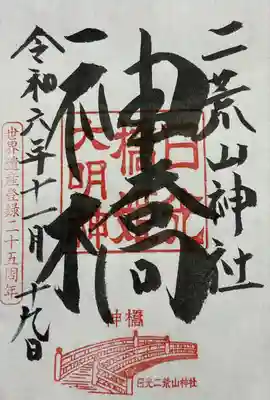 二荒山神社
日光
橋姫
大明神
令和六年十一月十九日
世界遺産登録二十五周年
神橋
日光二荒山神社